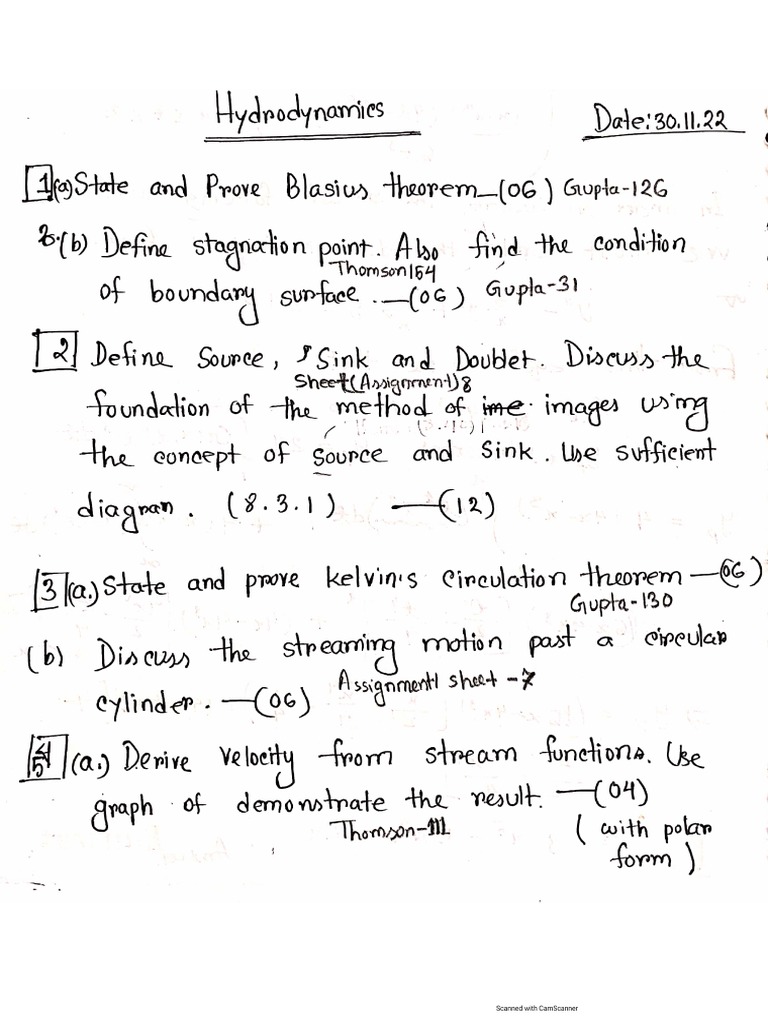 Hydrodynamics
Date:30.11.22
1.(a) State and Prove Blasius theorem —(06) Gupta-126
(b) Define stagnation point. Also find the condition
Thomson 164
of boundary surface. —(06) Gupta-31
2 Define Source, Sink and Doublet. Discuss the
Sheet(Assignment)8
foundation of the method of ime images using
the concept of source and sink. Use sufficient
diagram. (8.3.1) —(12)
3 (a.) State and prove kelvin's circulation theorem —(06)
Gupta-130
(b) Discuss the streaming motion past a circular
cylinder. —(06) Assignment sheet -7
5 (a.) Derive velocity from stream functions. Use
graph of demonstrate the result. —(04)
Thomson-111 (with polar
form)
Scanned with CamScanner